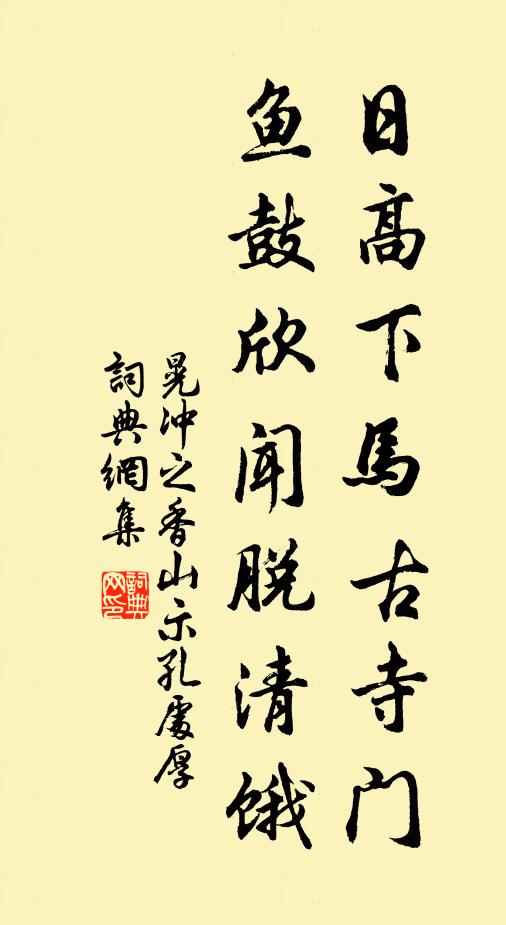 日高下馬古寺门
鱼鼓欣闻脱清饿
晁冲之香山示孔處厚
詞典網集
詞典网印